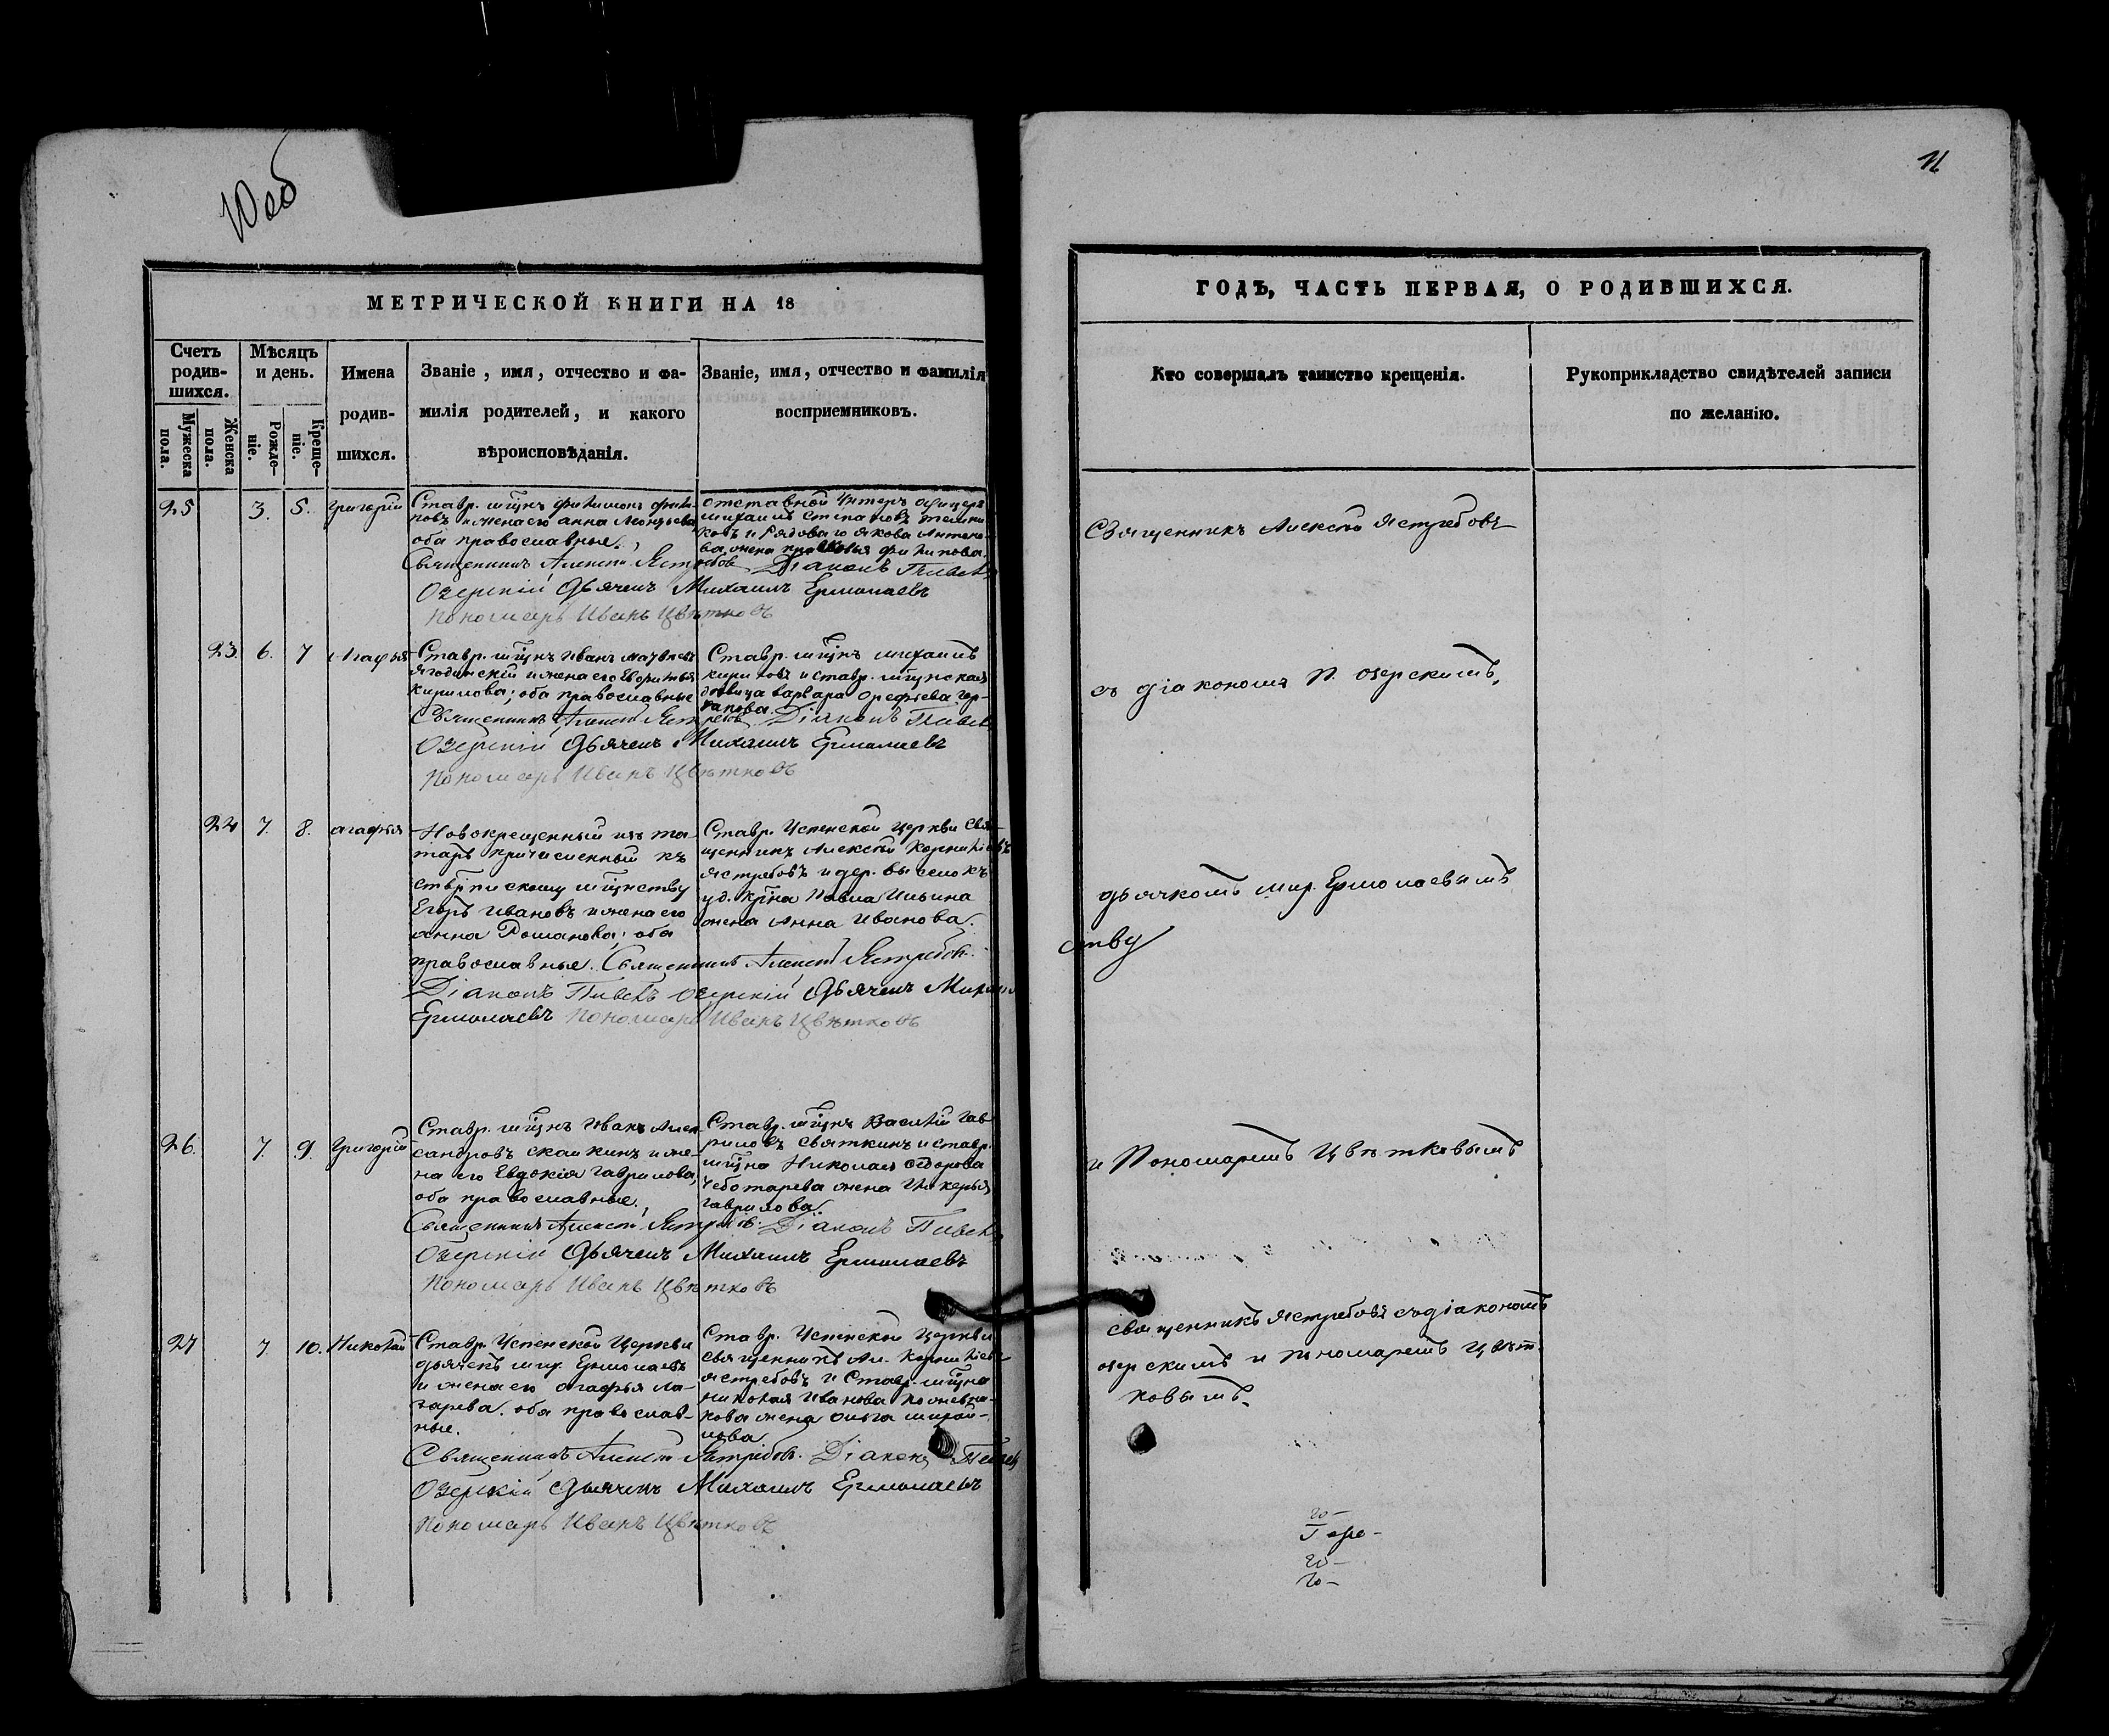 11
МЕТРИЧЕСКОЙ КНИГИ НА 18
ГОДЪ, ЧАСТЬ ПЕРВАЯ, О РОДИВШИХСЯ.
Счетъ родившихся.
Мужеска пола.
Женска пола.
Мѣсяцъ и день.
Рожденіе.
Крещеніе.
Имена родившихся.
Званіе, имя, отчество и фамилія родителей, и какого вѣроисповѣданія.
Званіе, имя, отчество и фамилія восприемниковъ.
Кто совершалъ таинство крещенія.
Рукоприкладство свидѣтелей записи по желанію.
25 3. 5. Григорій
Ставр. мщнъ Филимонъ Фили-
повъ и жена его Анна Леонтьева
оба православные.
отставной Унтеръ Офицеръ
Михаилъ Степановъ
ковъ и Рядоваго Якова Антоно-
ва жена Филипова.
Священникъ Алексѣй Ястребовъ Діаконъ Павелъ
Озерскій Дьячекъ Михаилъ Ермолаевъ
Пономарь Иванъ Цвѣтковъ
Священникъ Алексѣй Ястребовъ
23. 6. 7 Агафья
Ставр. мщнъ Иванъ Матвѣевъ
Ягодинскій и жена его
Кирилова; оба православные
Ставр. мщнъ Михаилъ
Кириловъ и ставр. мщнская
дѣвица Варвара Орефьева
Священникъ Алексѣй Ястребовъ Діаконъ Павелъ
Озерскій Дьячекъ Михаилъ Ермолаевъ
Пономарь Иванъ Цвѣтковъ
съ діакономъ П. Озерскимъ,
24 7. 8. Агафья
Новокрещенный изъ та-
таръ причисленный къ
мщнству
Егоръ Ивановъ и жена его
Анна Романова; оба
православные. Священникъ Алексѣй Ястребовъ.
Ставр. Успенской Церкви Свя-
щенникъ Алексѣй Корниліевъ
Ястребовъ и дер. Выселокъ
уд. крна Павла Ильина
жена Анна Иванова.
Діаконъ Павелъ Озерскій Дьячекъ Михаилъ
Ермолаевъ Пономарь Иванъ Цвѣтковъ
дьячкомъ Мих. Ермолаевымъ
ству
26. 7. 9. Григорій
Ставр. мщнъ Иванъ Алек-
сандровъ Скалкинъ и же-
на его Евдокія Гаврилова,
оба православные.
Ставр. мщнъ Василій Гав-
риловъ Святкинъ и ставр.
мщна Николая Ѳедорова
Чеботарева жена Гликерья
Гаврилова.
Священникъ Алексѣй Ястребовъ. Діаконъ Павелъ
Озерскій Дьячекъ Михаилъ Ермолаевъ
Пономарь Иванъ Цвѣтковъ
и Пономаремъ Цвѣтковымъ
27 7 10. Николай
Ставр. Успенской Церкви
дьячекъ Мих. Ермолаевъ
и жена его Агафья Ла-
зарева. оба православ-
ные.
Ставр. Успенской Церкви
священникъ Ал. Корниліевъ
Ястребовъ и Ставр. мщна
Николая Иванова Кожевни-
кова жена Ольга Михай-
лова
Священникъ Алексѣй Ястребовъ. Діаконъ Павелъ
Озерскій Дьячекъ Михаилъ Ермолаевъ
Пономарь Иванъ Цвѣтковъ
священникъ Ястребовъ съ діакономъ
Озерскимъ и пономаремъ Цвѣт-
ковымъ.